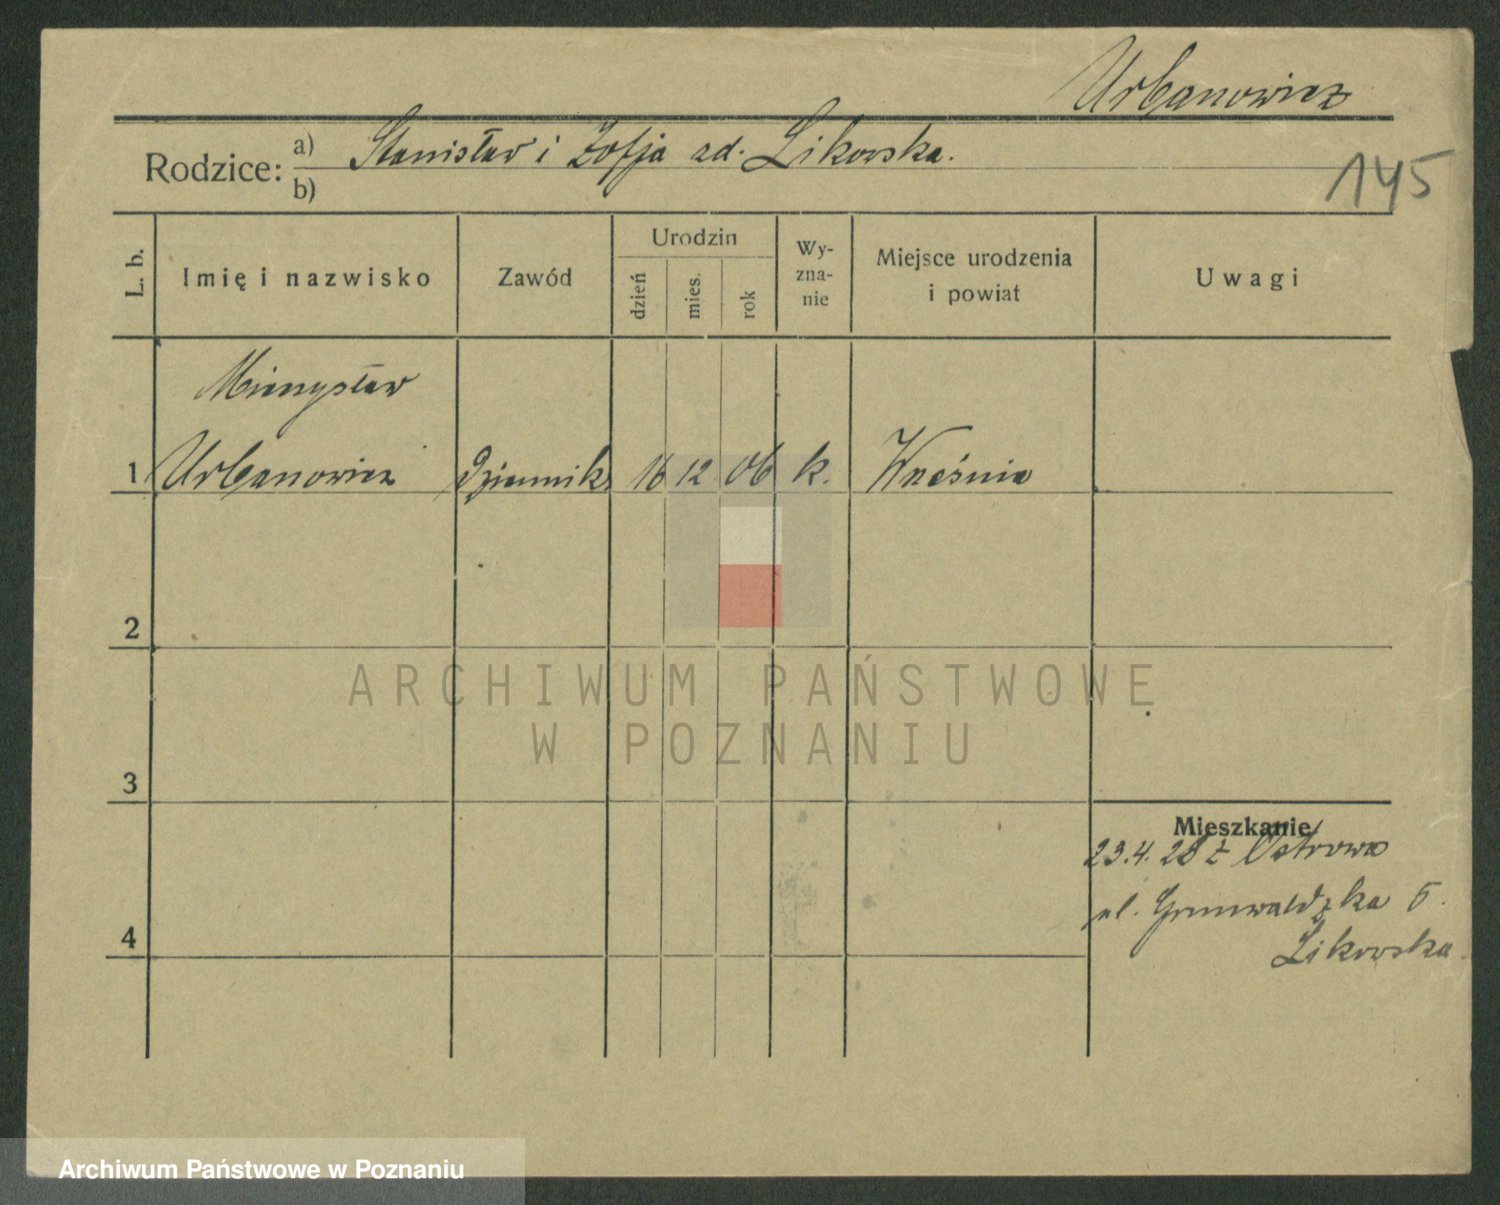 Urbanowicz
Rodzice: a) Stanisław i Zofja zd. Likowska.
b)
145
L. b.
Imię i nazwisko
Zawód
Urodzin
dzień
mies.
rok
Wy-
zna-
nie
Miejsce urodzenia
i powiat
Uwagi
Mieczysław
1 Urbanowicz dziennik. 16 12 06 k. Września
2
ARCHIWUM PAŃSTWOWE
W POZNANIU
3
Mieszkanie
23.4.28 z Ostrowa
ul. Grunwaldzka 5.
4
Likowska.
Archiwum Państwowe w Poznaniu